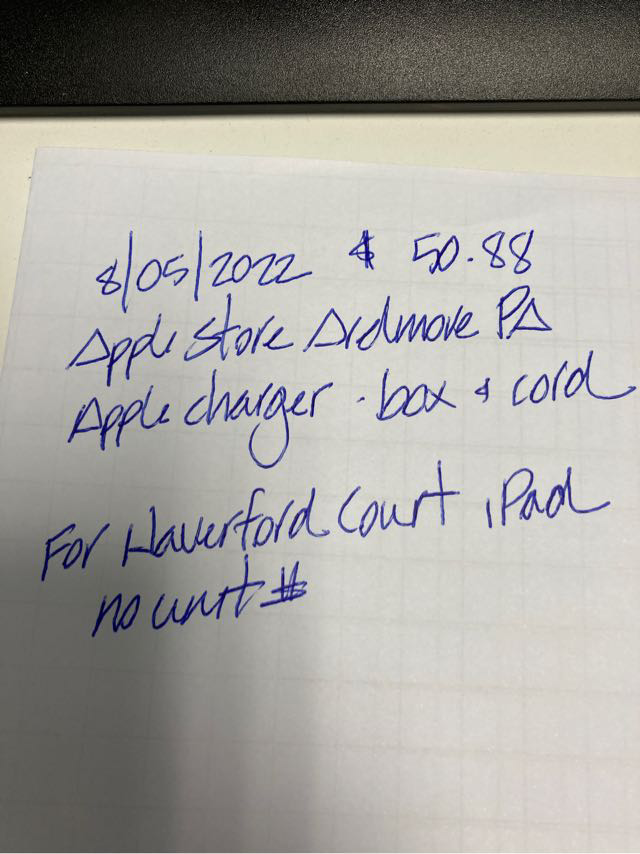 8/05/2022 $ 50.88
Apple Store Ardmore PA
Apple charger - box & cord
For Haverford Court iPad
no unit #